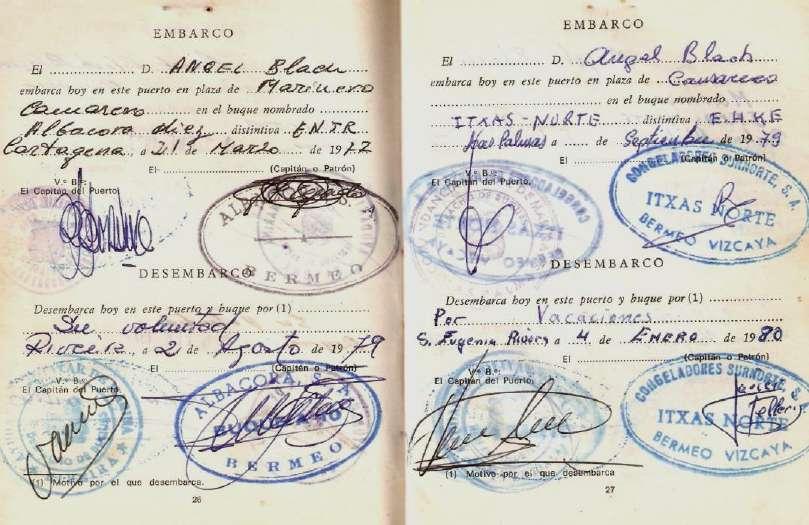 EMBARCO
El ............... D. ANGEL Blach
embarca hoy en este puerto en plaza de Marinero
Camarero en el buque nombrado
Albacora diez distintiva E.N.T.R
Cartagena, a 21 de Marzo de 1977
El (Capitán o Patrón)
V.º B.º:
El Capitán del Puerto,
ALBACORA
BERMEO
DESEMBARCO
Desembarca hoy en este puerto y buque por (1)
Su voluntad
Riveira a 2 de Agosto de 1979
El (Capitán o Patrón)
V.º B.º:
El Capitán del Puerto,
ALBACORA, S.A.
BUQUE
BERMEO
(1) Motivo por el que desembarca.
26
EMBARCO
El ............... D. Angel Blach
embarca hoy en este puerto en plaza de Camarero
en el buque nombrado
ITXAS-NORTE distintiva E.H.K.F
Las Palmas a ...... de Septiembre de 1979
El (Capitán o Patrón)
V.º B.º:
El Capitán del Puerto,
CONGELADORES SURNORTE, S.A.
ITXAS NORTE
BERMEO VIZCAYA
DESEMBARCO
Desembarca hoy en este puerto y buque por (1)
Por Vacaciones
S. Eugenia Riveira a 4 de ENERO de 1980
El (Capitán o Patrón)
V.º B.º:
El Capitán del Puerto,
CONGELADORES SURNORTE, S.
ITXAS NORTE
BERMEO VIZCAYA
(1) Motivo por el que desembarca
27